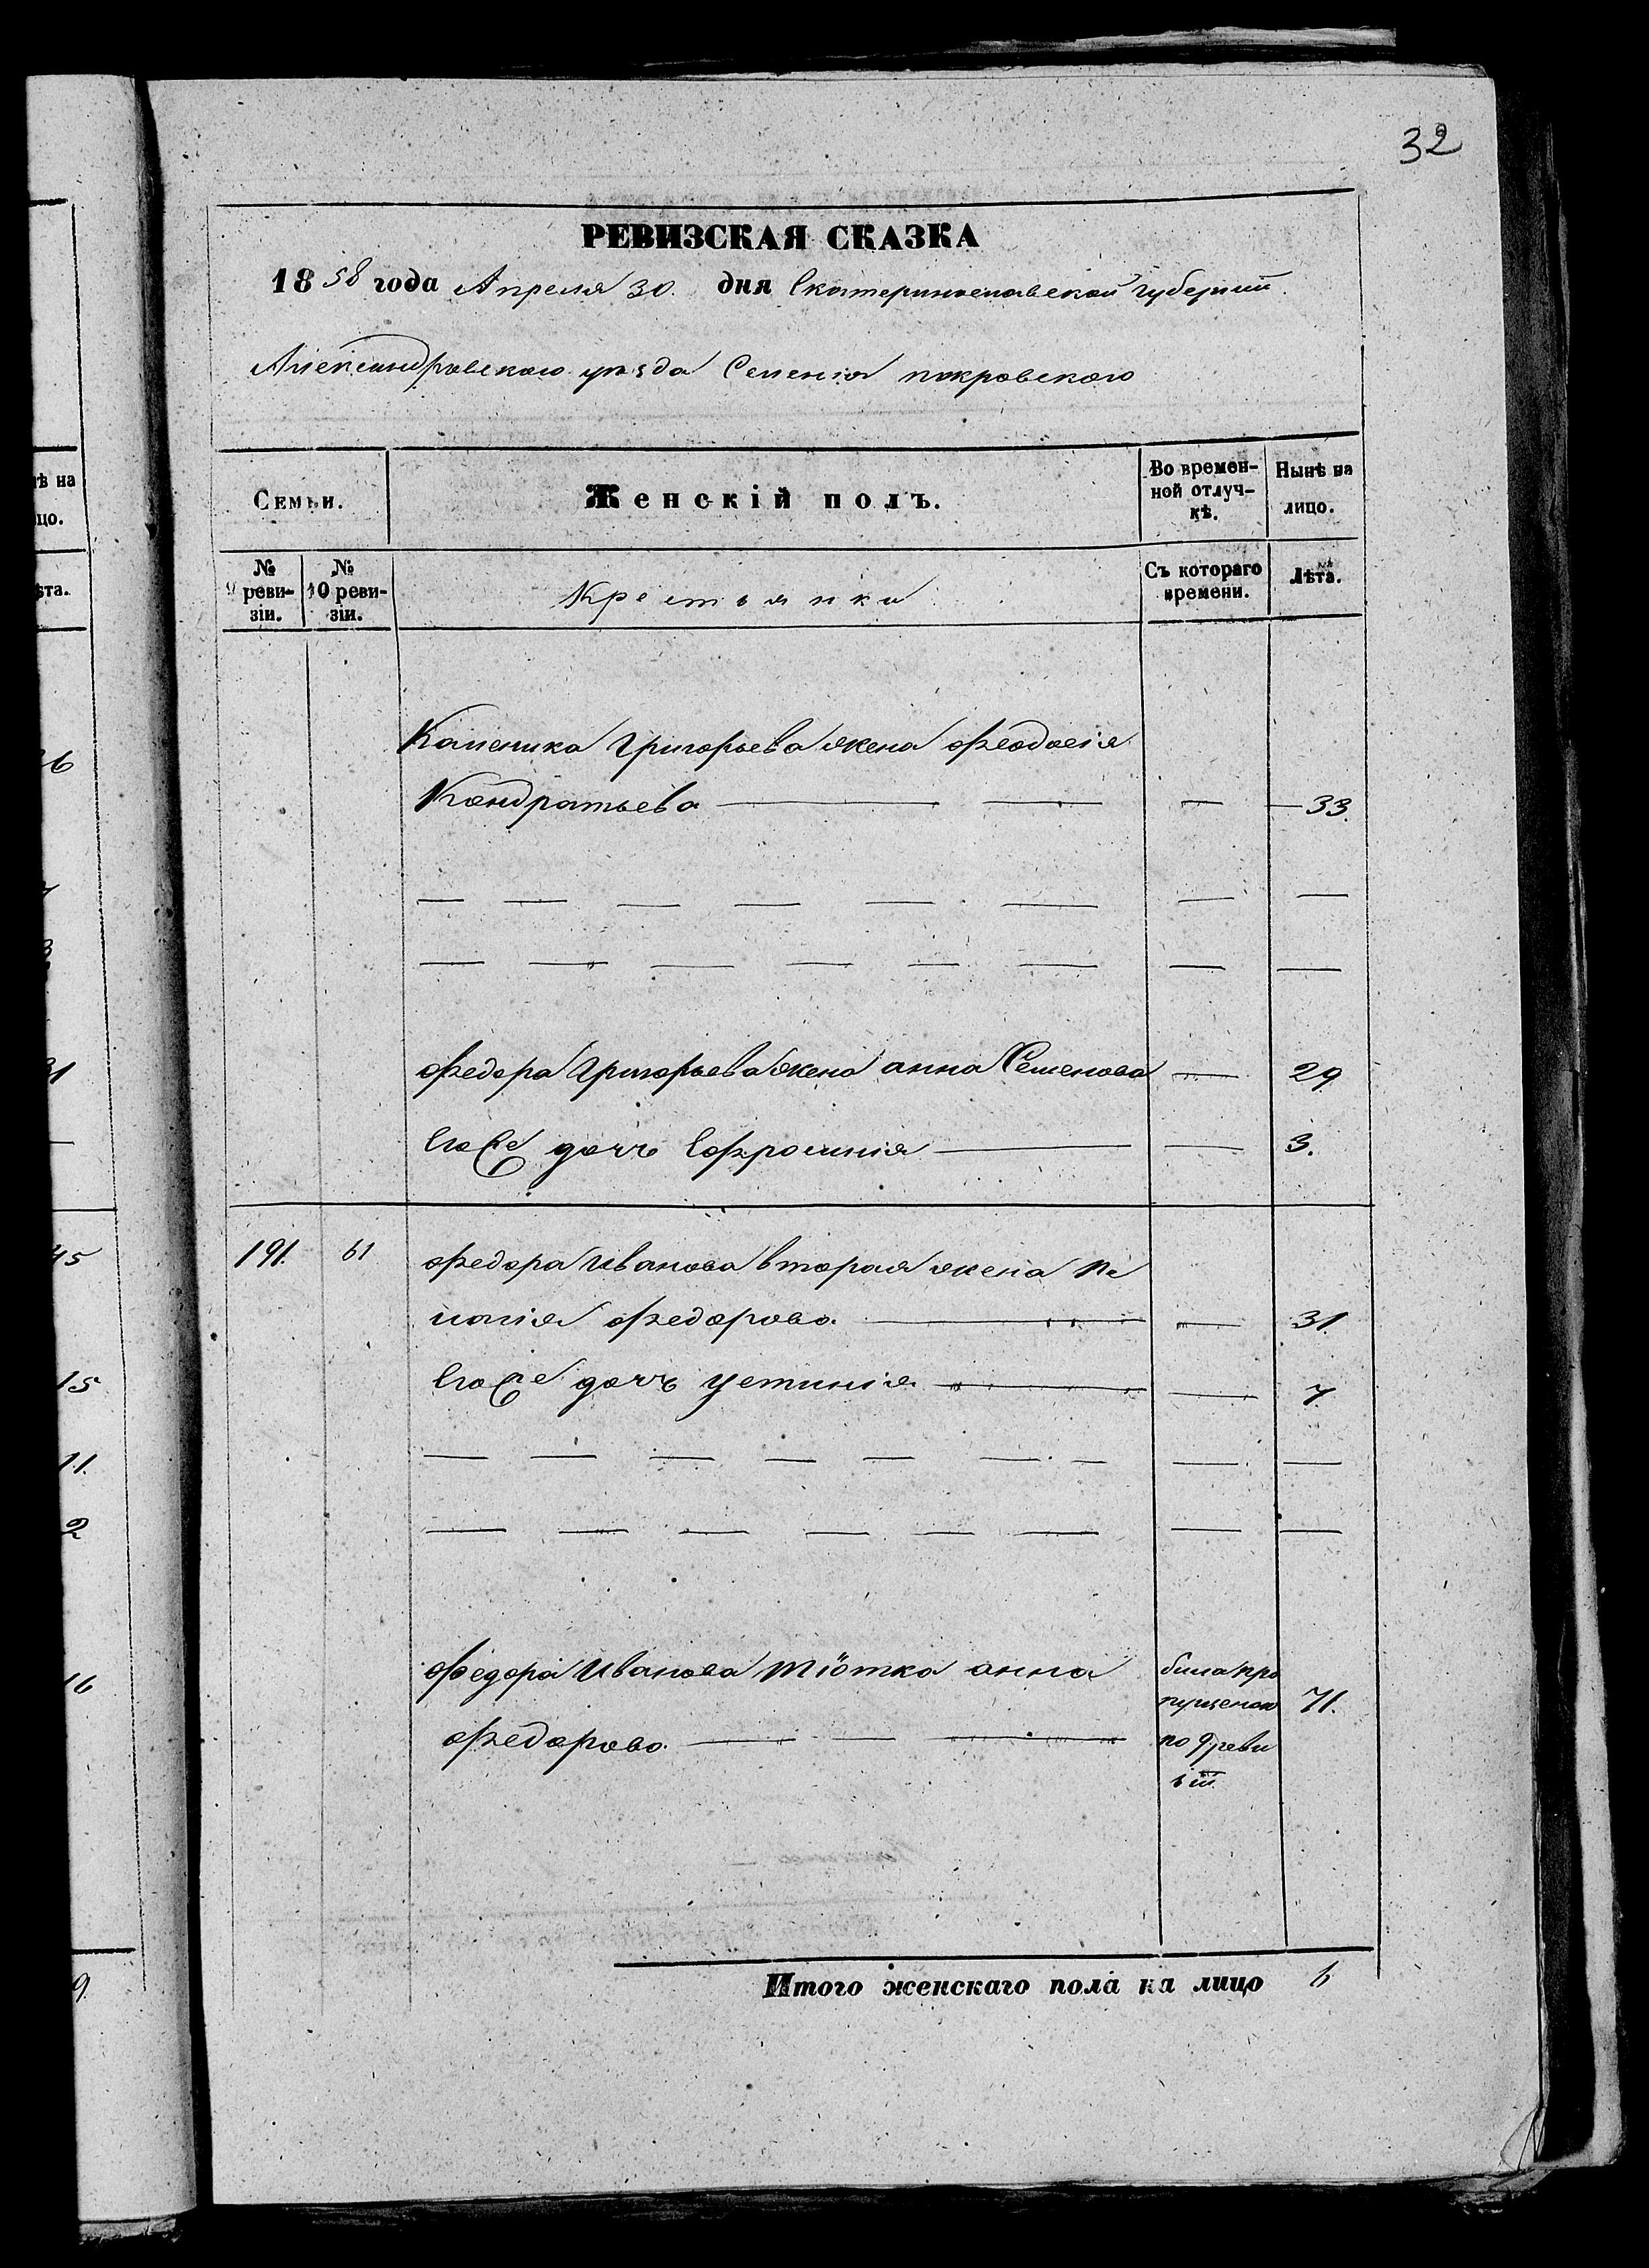 32
РЕВИЗСКАЯ СКАЗКА
1858 года Апреля 30. дня Екатеринославской губернии.
Александровского уѣзда Селенія покровского
Семьи.
Женскій полъ.
Во времен-
ной отлуч-
кѣ.
Нынѣ на
лицо.
№
9 реви-
зіи.
№
10 реви-
зіи.
Крестьянки
Съ котораго
времени.
Лѣта.
Каленика Григорьева жена Феодосія
Кондратьева — — — — 33.
— — — — — — — —
— — — — — — — —
Федора Григорьева жена анна Семенова — 29
Его же дочь Ефросинія — — 3.
191. 61 Федора Иванова вторая жена Пе
лагія Федорова — — 31.
Его же дочь устинія — — 7
— — — — — — — — —
— — — — — — — —
Федора Иванова тіотка анна
Федорова — — —
била про
пущеною
по 9 реви
зіи.
71.
Итого женскаго пола на лицо 6
ѣ на
цо.
ѣта.
31
45
15
11.
2
16
9.